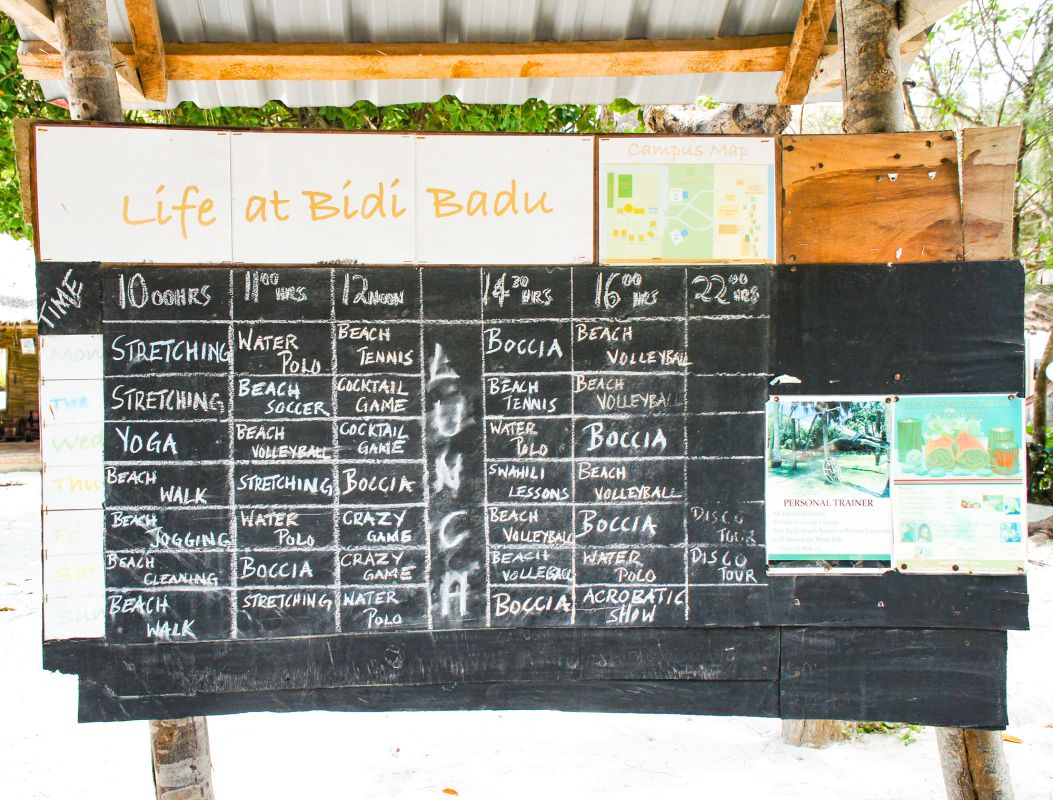 Life at Bidi Badu
Campus Map
TIME 10 00HRS 11 00 HRS 12 NOON 14 30 HRS 16 00 HRS 22 00 HRS
LUNCH
Mon STRETCHING WATER POLO BEACH TENNIS BOCCIA BEACH VOLLEYBALL
Tue STRETCHING BEACH SOCCER COCKTAIL GAME BEACH TENNIS BEACH VOLLEYBALL
Wed YOGA BEACH VOLLEYBALL COCKTAIL GAME WATER POLO BOCCIA
Thu BEACH WALK STRETCHING BOCCIA SWAHILI LESSONS BEACH VOLLEYBALL
Fri BEACH JOGGING WATER POLO CRAZY GAME BEACH VOLLEYBALL BOCCIA DISCO TOUR
Sat BEACH CLEANING BOCCIA CRAZY GAME BEACH VOLLEBALL WATER POLO DISCO TOUR
Sun BEACH WALK STRETCHING WATER POLO BOCCIA ACROBATIC SHOW
PERSONAL TRAINER